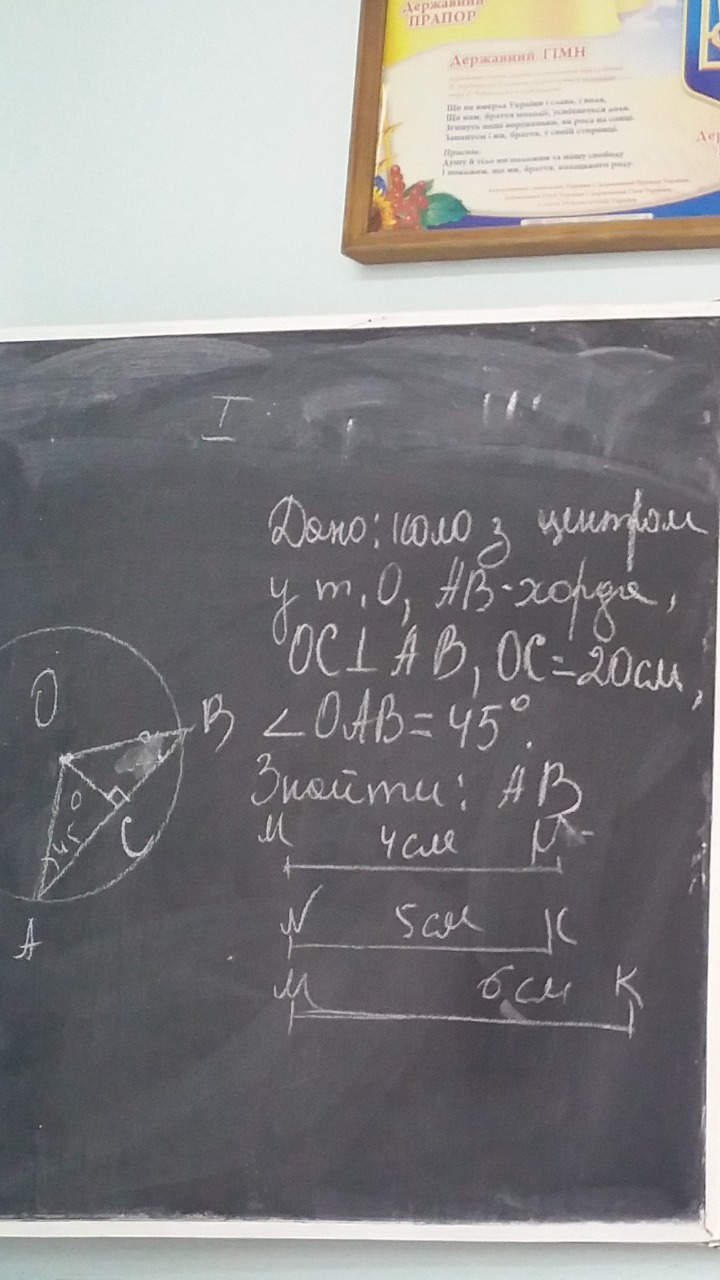 Державний
ПРАПОР
Державний ГІМН
Ще не вмерла України і слава, і воля,
Ще нам, браття молодії, усміхнеться доля.
Згинуть наші воріженьки, як роса на сонці.
Запануєм і ми, браття, у своїй сторонці.
Приспів:
Душу й тіло ми положим за нашу свободу
І покажем, що ми, браття, козацького роду.
I
Дано: коло з центром
у т. О, AB-хорда,
OC⊥AB, OC=20см,
∠OAB=45°.
Знайти: AB
O
B
C
45°
A
M 4см N
N 5см K
M 6см K